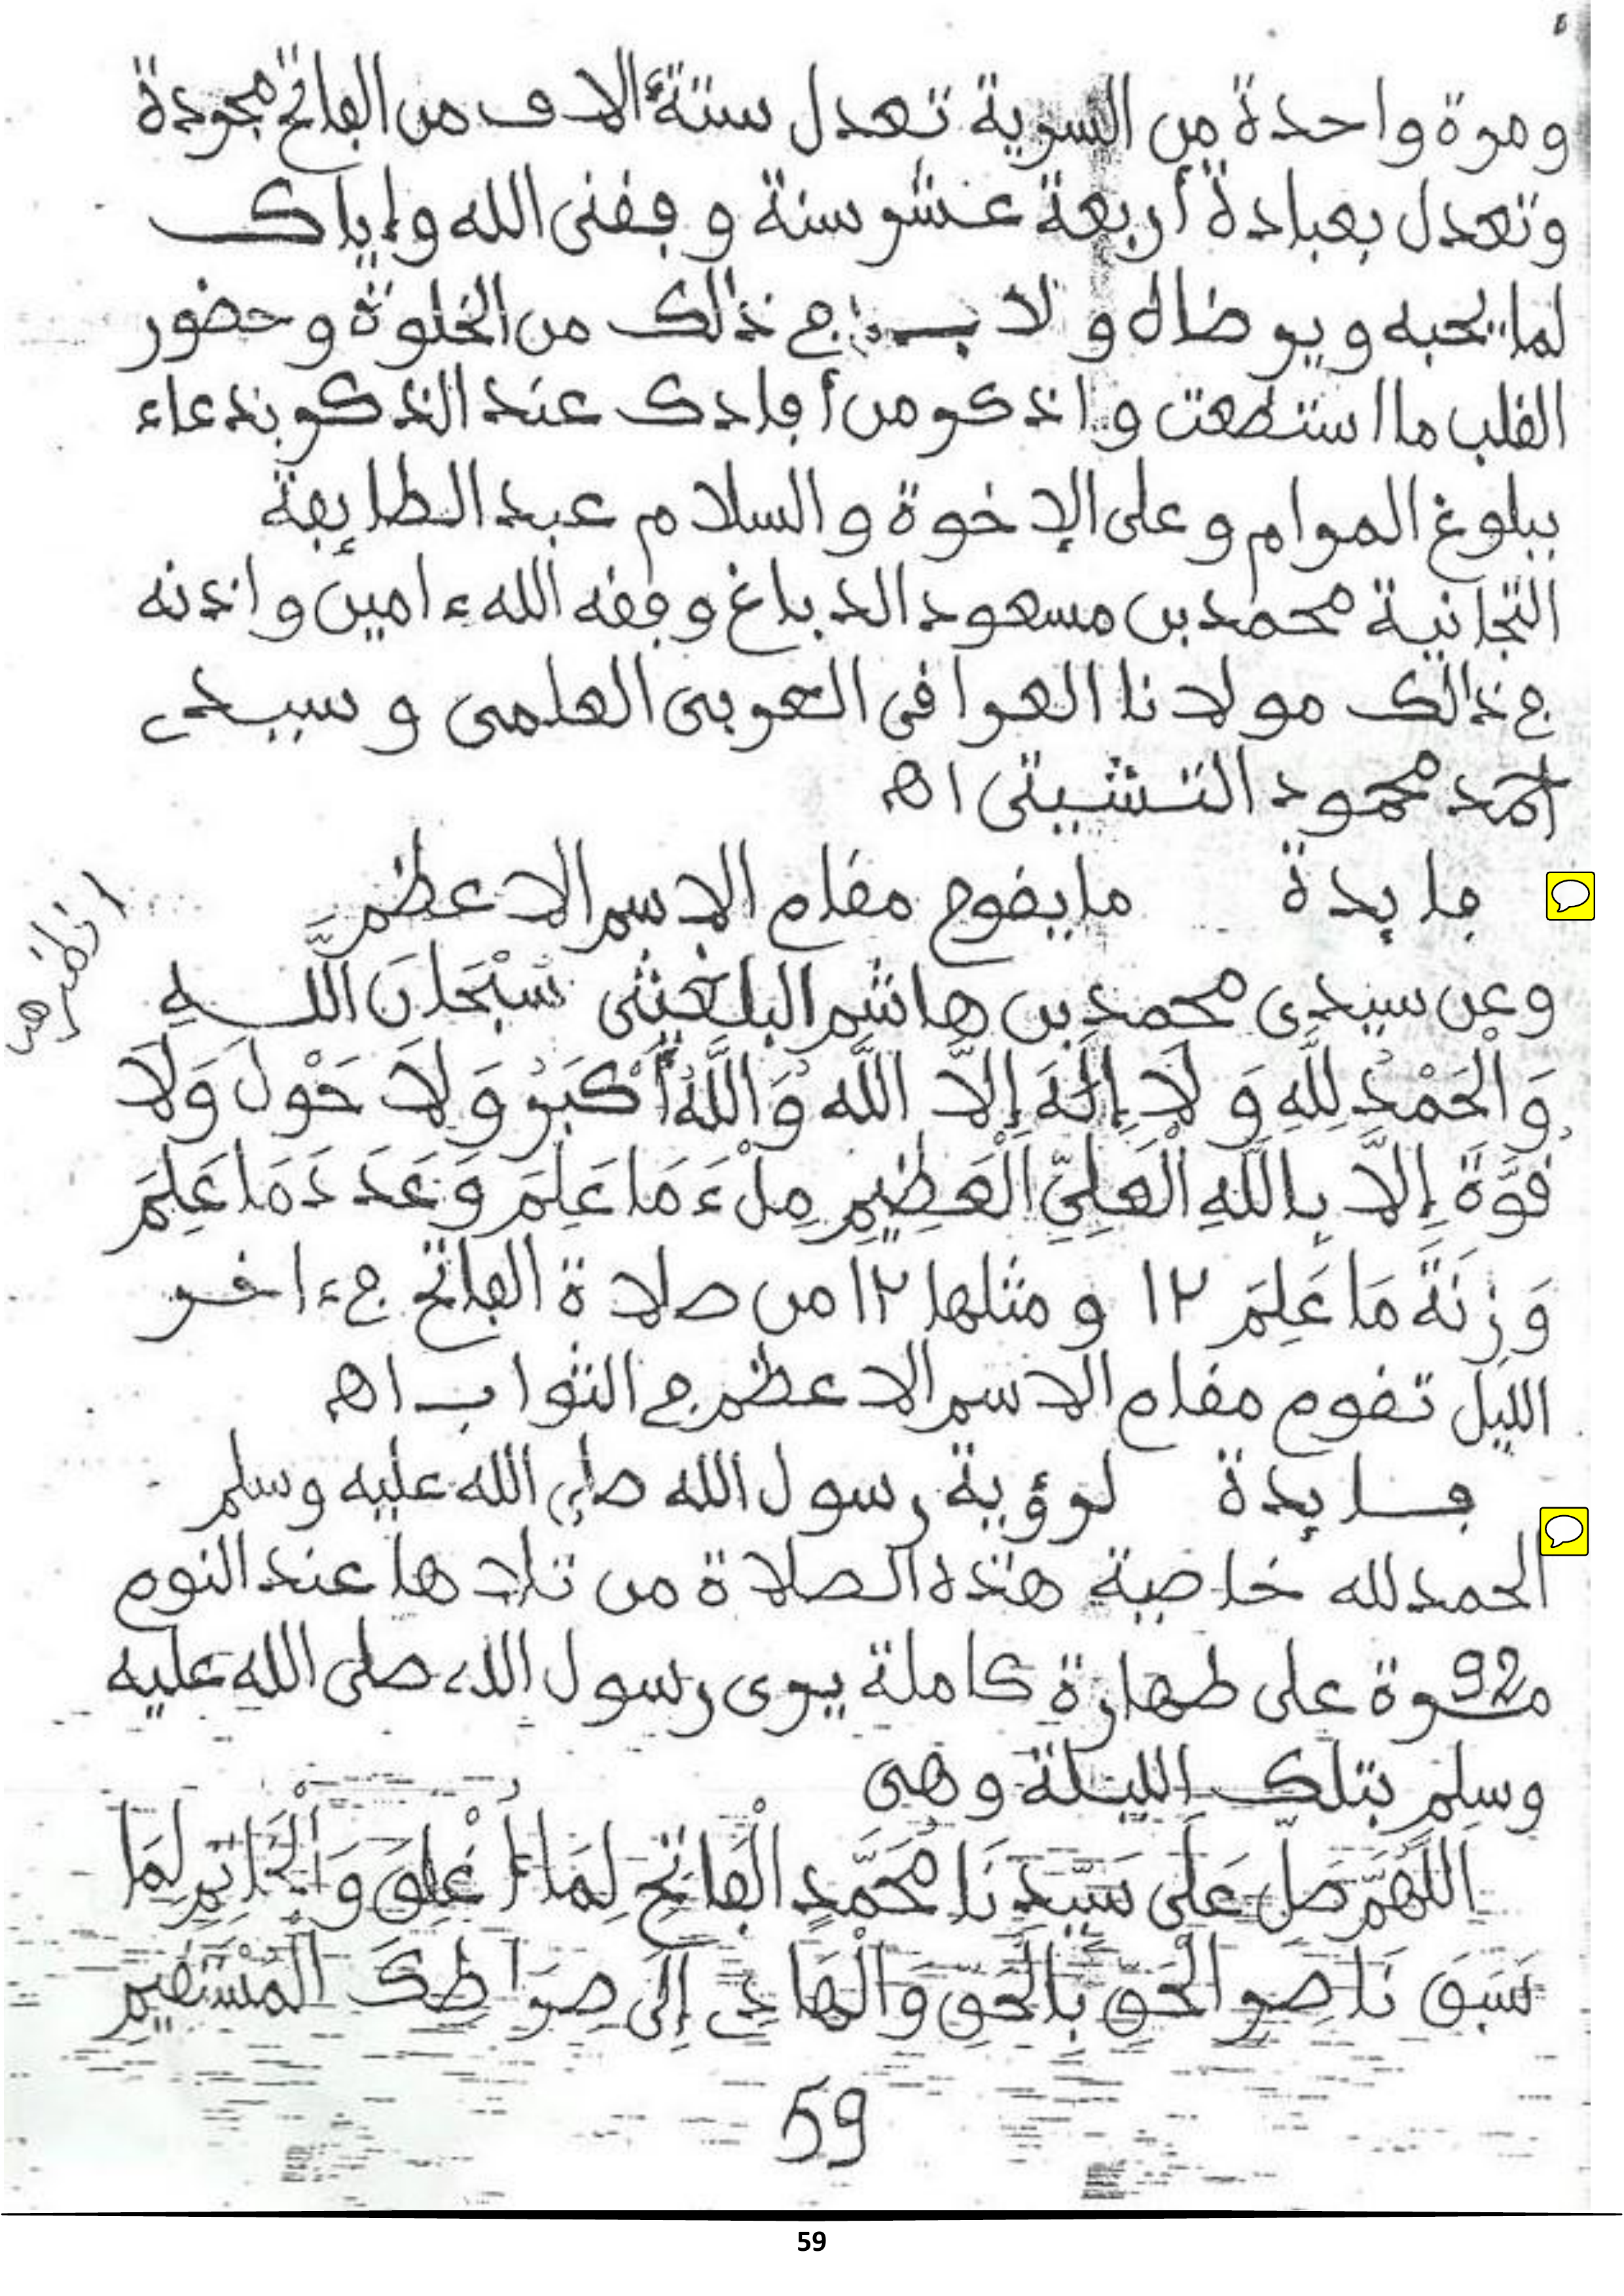 ومرة واحدة من السرية تعدل ستة ءالاف من الفاتح مجردة
وتعدل بعبادة أربعة عشر سنة وفقنى الله وإياك
لما يحبه ويرضاه ولا بد فى ذالك من الخلوة وحضور
القلب ما استطعت واذكر من أفادك عند الذكر بدعاء
ببلوغ المرام وعلى الإخوة والسلام عبد الطايفة
التجانية محمد بن مسعود الدباغ وفقه الله ءامين واذنه
فى ذالك مولانا العرافى العربى العلمى وسيدى
أحمد محمود التشيتى اه
فايدة ما يقوم مقام الاسم الاعظم
انظر هـ
وعن سيدى محمد بن هاشم البلغيثى سُبْحَانَ اللهِ
وَالْحَمْدُ لِلَّهِ وَلَا إِلَهَ إِلَّا اللَّه وَاللَّهُ أَكْبَرُ وَلَا حَوْلَ وَلَا
قُوَّةَ إِلَّا بِاللَّهِ الْعَلِيِّ الْعَظِيمِ مِلْءَ مَا عَلِمَ وَعَدَدَ مَا عَلِمَ
وَزِنَةَ مَا عَلِمَ ١٢ ومثلها ١٢ من صلاة الفاتح فى ءاخر
الليل تقوم مقام الاسم الاعظم فى الثواب اه
فايدة لرؤية رسول الله صلى الله عليه وسلم
الحمد لله خاصية هذه الصلاة من تلاها عند النوم
92 مرة على طهارة كاملة يرى رسول الله صلى الله عليه
وسلم بتلك الليلة وهى
اللَّهُمَّ صَلِّ عَلَى سَيِّدِنَا مُحَمَّدٍ الْفَاتِحِ لِمَا أُغْلِقَ وَالْخَاتِمِ لِمَا
سَبَقَ نَاصِرِ الْحَقِّ بِالْحَقِّ وَالْهَادِى إِلَى صِرَاطِكَ الْمُسْتَقِيمِ
59
59